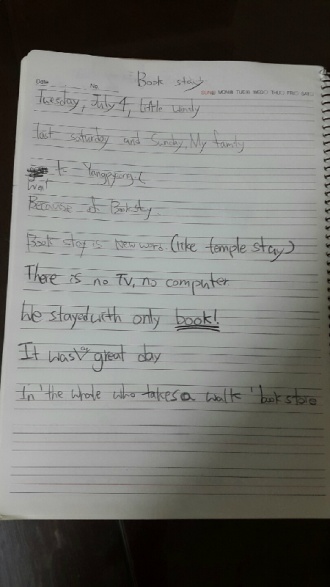 Book stay
Date No. SUN MON TUE WED THU FRI SAT
Tuesday, July 4, Little windy
Last saturday and Sunday, My family
Went to Yangpyung
Because of Bookstay
Book stay is New word (like temple stay)
There is no TV, no computer
We stayed with only book!
It was a great day
In 'the whale who takes a walk' bookstore